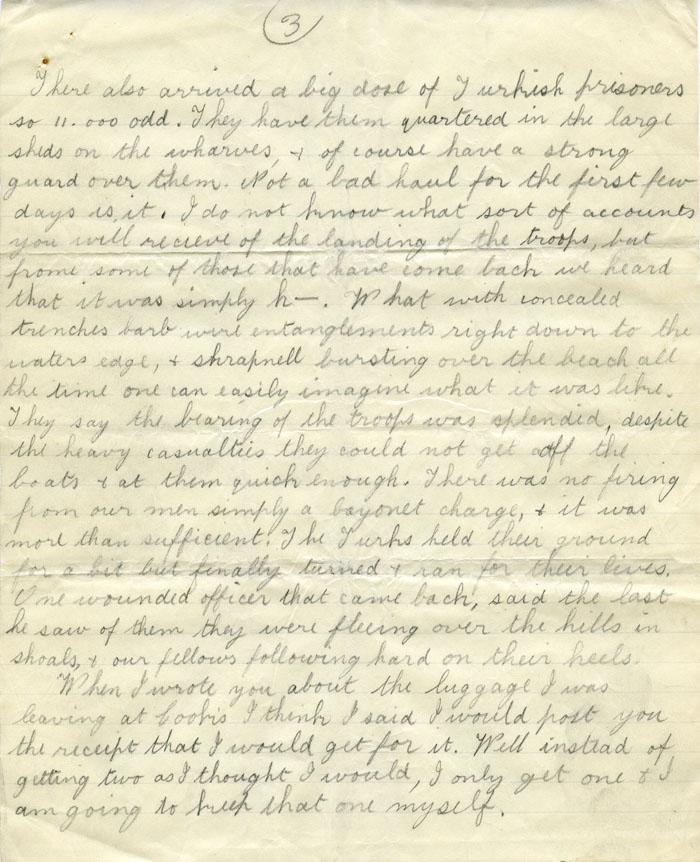 3
There also arrived a big dose of Turkish prisoners
so 11.000 odd. They have them quartered in the large
sheds on the wharves, & of course have a strong
guard over them. Not a bad haul for the first few
days is it. I do not know what sort of accounts
you will recieve of the landing of the troops, but
frome some of those that have come back we heard
that it was simply h—. What with concealed
trenches barb wire entanglements right down to the
waters edge, & shrapnell bursting over the beach all
the time one can easily imagine what it was like.
They say the bearing of the troops was splendid, despite
the heavy casualties they could not get off the
boats & at them quick enough. There was no firing
from our men simply a bayonet charge, & it was
more than sufficient. The Turks held their ground
for a bit but finally turned & ran for their lives.
One wounded officer that came back, said the last
he saw of them they were fleeing over the hills in
shoals, & our fellows following hard on their heels.
When I wrote you about the luggage I was
leaving at Cooks I think I said I would post you
the receipt that I would get for it. Well instead of
getting two as I thought I would, I only get one & I
am going to keep that one myself.